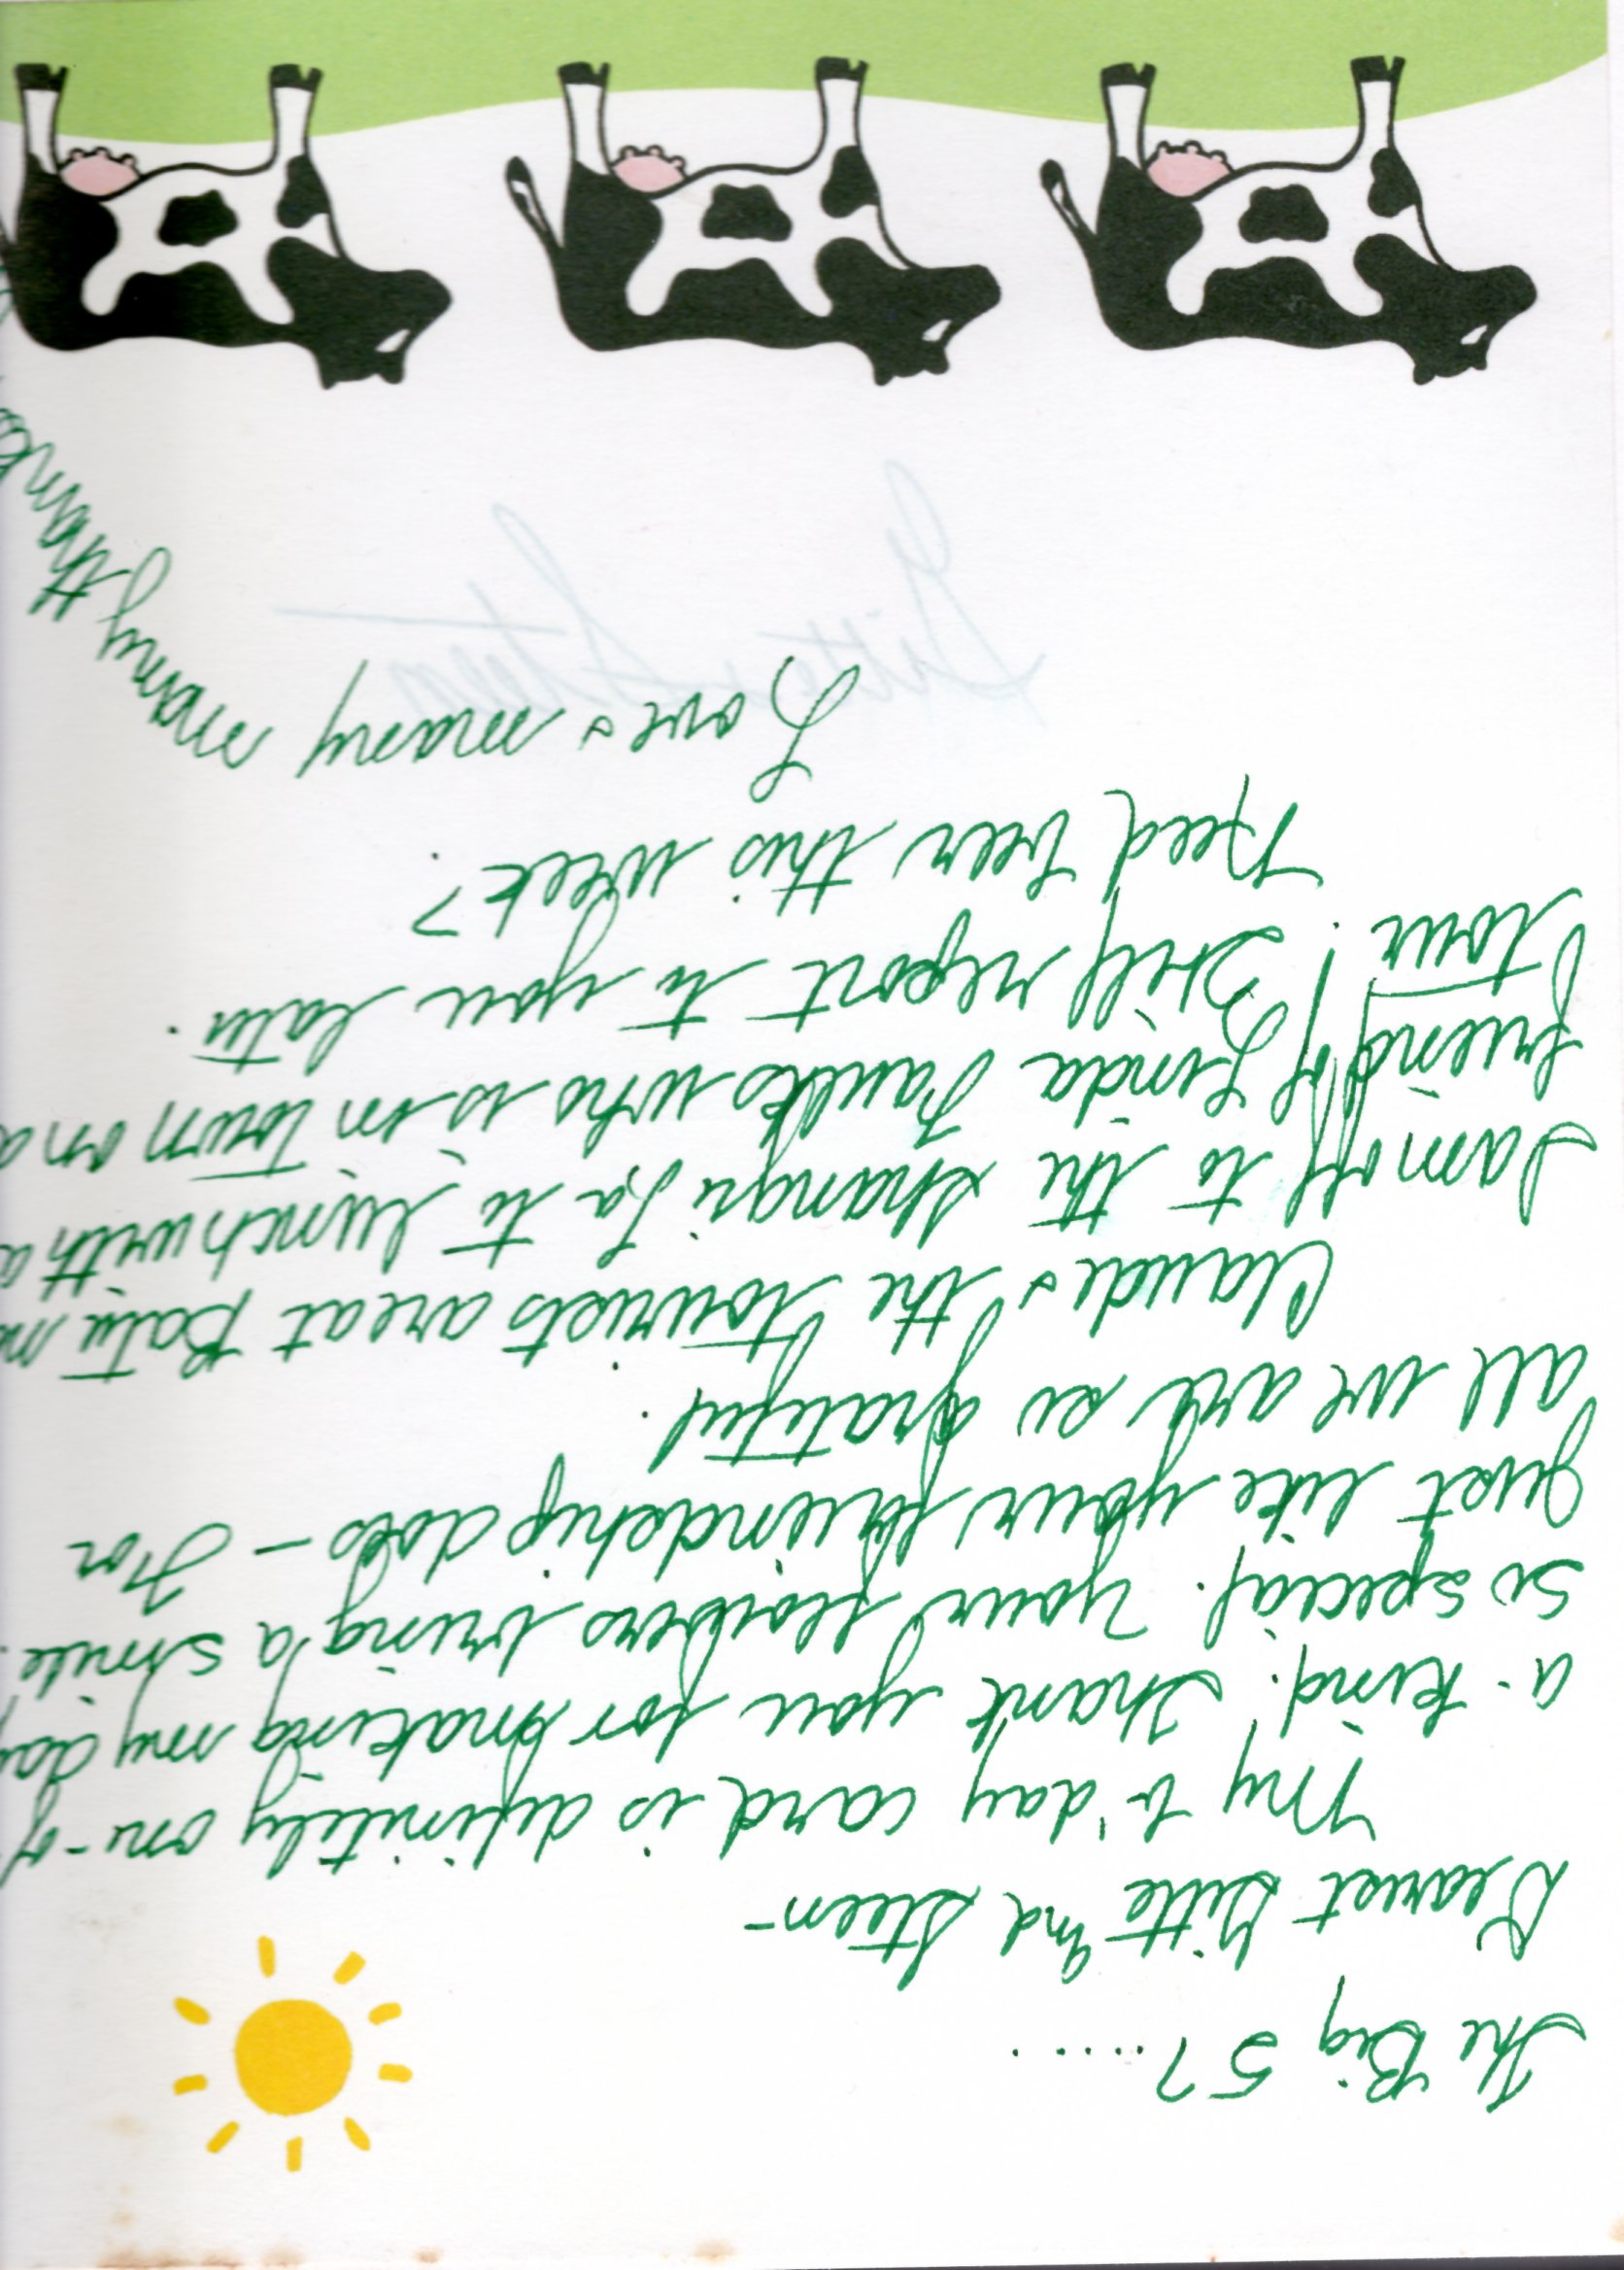 The Big 57......
Dearest Gitte and Steen-
My b'day card is definitely one-of-
a-kind! Thank you for making my day
so special. Your flowers bring a smile.
just like your friendship does - For
all we are so grateful.
Claude & the tourists are at Batu
I am off to the Shangri La to lunch with a
friend of Linda who is in town on a
tour! I'll report to you later.
Need beer this week?
Love & many many